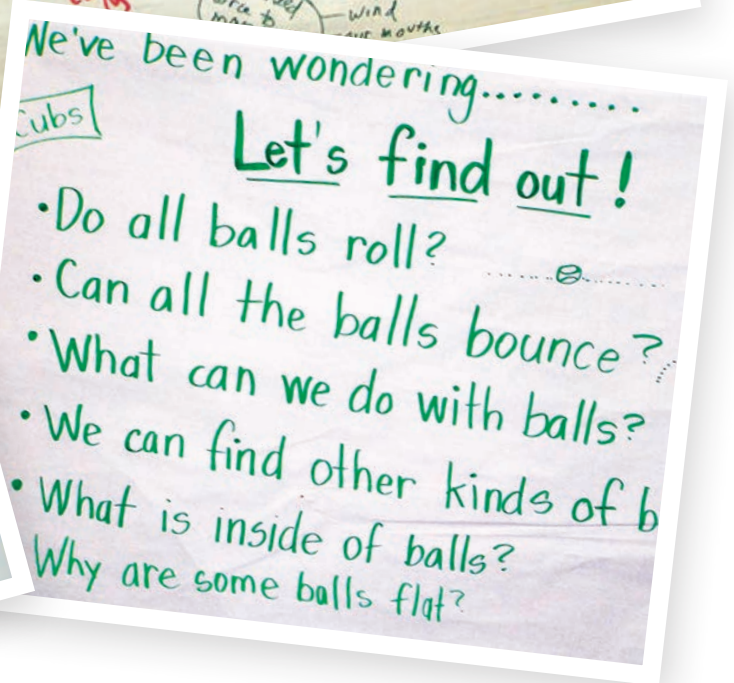 wind
We've been wondering.........
Cubs
Let's find out!
•Do all balls roll?
•Can all the balls bounce?
•What can we do with balls?
•We can find other kinds of b
•What is inside of balls?
Why are some balls flat?